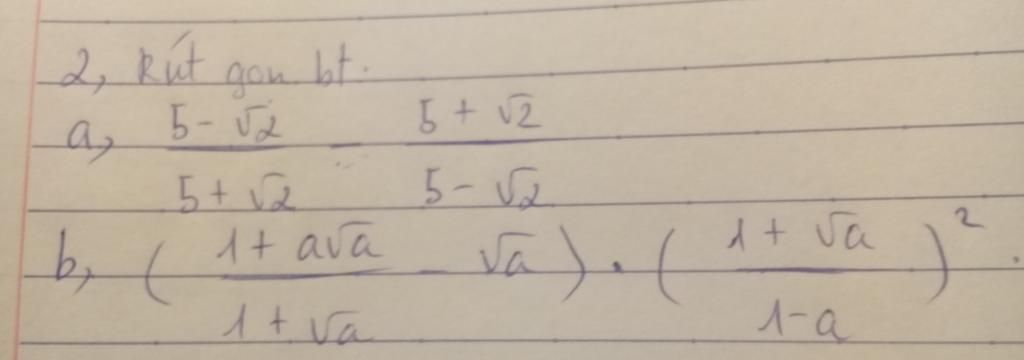 2, Rút gọn bt.
a, \frac{5-\sqrt{2}}{5+\sqrt{2}} - \frac{5+\sqrt{2}}{5-\sqrt{2}}
b, ( \frac{1+a\sqrt{a}}{1+\sqrt{a}} - \sqrt{a} ) . ( \frac{1+\sqrt{a}}{1-a} )^2 .